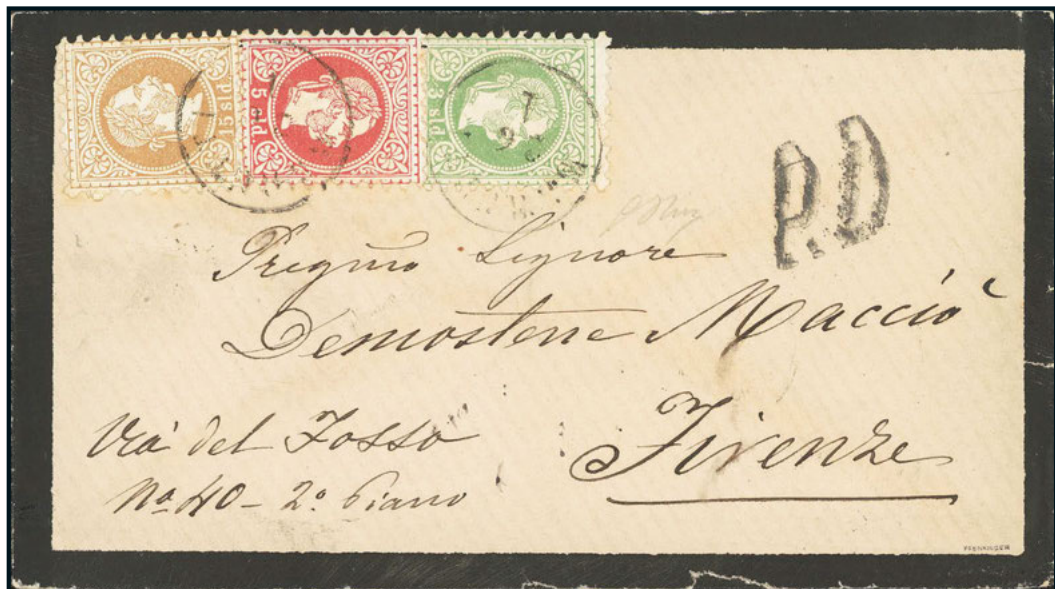 15 sld.
5 sld.
3 sld.
P.D
Pregmo Signore
Demostene Macciò
Firenze
Via del Fosso
No 40 - 2o Piano